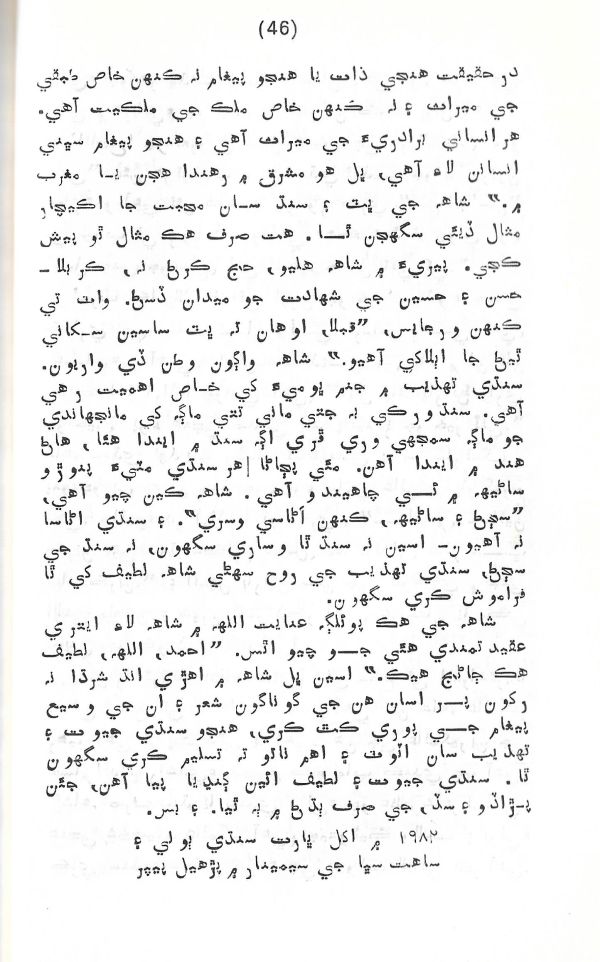 (46)
در حقيقت هنجي ذات يا هنجو پيغام نہ ڪنهن خاص طبقي
جي ميراث ۽ نہ ڪنهن خاص ملڪ جي ملڪيت آهي.
هر انساني برادريءَ جي ميراث آهي ۽ هنجو پيغام سڀني
انسانن لاءِ آهي، ڀل هو مشرق ۾ رهندا هجن يا مغرب
۾.” شاھہ جي ڀٽ ۽ سنڌ سان محبت جا اڪيچار
مثال ڏيئي سگهجن ٿا. هت صرف هڪ مثال ٿو پيش
ڪجي. پيريءَ ۾ شاھہ هليو، حج ڪرڻ نہ، ڪربلا –
حسن ۽ حسين جي شهادت جو ميدان ڏسڻ. واٽ تي
ڪنهن ورجايس، ”قبلا، اوهان تہ ڀٽ ساسين سڪاني
ٿيڻ جا ابلاکي آهيو.” شاھہ واڳون وطن ڏي واريون.
سنڌي تهذيب ۾ جنم ڀوميءَ کي خاص اهميت رهي
آهي. سنڌ ورڪي بہ جتي ماني تتي ماڳہ کي مانجهاندي
جو ماڳہ سمجهي وري ڦري اڳہ سنڌ ۾ ايندا هئا، هاڻ
هند ۾ ايندا آهن. مٿي پڄاڻا اهر سنڌي مٽيءَ پنوڙو
ساڻيھہ ۾ ئي چاهيندو آهي. شاھہ ڪين چيو آهي،
”سڄڻ ۽ ساڻيھہ، ڪنهن اَڻاسي وسري”. ۽ سنڌي اڻاسا
نہ آهيون– اسين نہ سنڌ ٿا وساري سگهون، نہ سنڌ جي
سڄڻ، سنڌي تهذيب جي روح سهڻي شاھہ لطيف کي ٿا
فراموش ڪري سگهون.
شاھہ جي هڪ پوئلڳہ عنايت اللہ ۾ شاھہ لاءِ ايتري
عقيدتمندي هئي جو چيو اٿس. ”احمد، اللہ، لطيف
هڪ ڄاڻيج هيڪ.” اسين ڀل شاھہ ۾ اهڙي انڌ شرڌا نہ
رکون پر اسان هن جي گوناگون شعر ۽ ان جي وسيع
پيغام جي پوري ڪٿ ڪري، هنجو سنڌي جيوت ۽
تهذيب سان اٽوٽ ۽ اهم ناتو تہ تسليم ڪري سگهون
ٿا. سنڌي جيوت ۽ لطيف ائين ڳنڍيا پيا آهن، جيئن
پڙاڏو ۽ سڏ، جي صرف ٻڌڻ ۾ ٻہ ٿيا. ۽ بس.
١٩٨٢ ۾ اکل ڀارت سنڌي ٻولي ۽
ساهت سڀا جي سيمينار ۾ پڙهيل پيپر